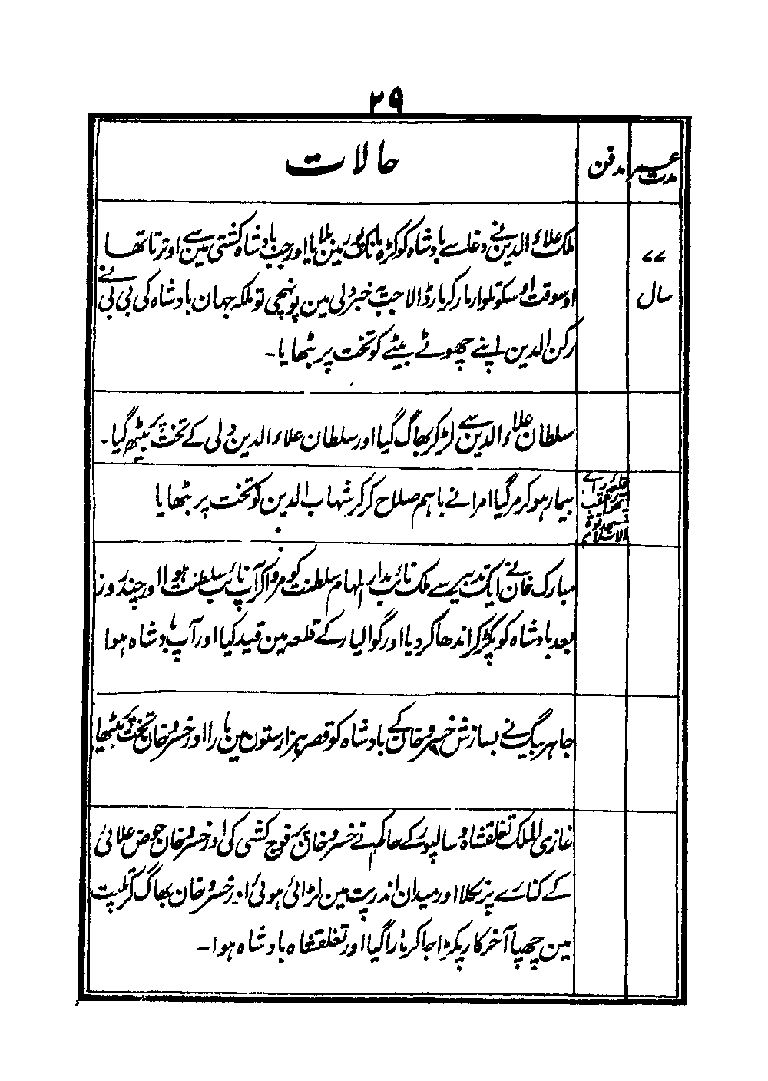 ۲۹
مدت عمر
مدفن
حالات
۷۷
سال
ملک علاء الدین نے دغا سے بادشاہ کو کڑہ مانکپور مین بلایا اور جب بادشاہ کشتی مین سے اوترتا تھا
اوسوقت اوسکو تلوار مار کر مار ڈالا جب یہ خبر دلی مین پونہچی تو ملکہ جہان بادشاہ کی بی بی نے
رکن الدین اپنے چھوٹے بیٹے کو تخت پر بٹھایا۔
سلطان علاء الدین سے لڑ کر بھاگ گیا اور سلطان علاء الدین دلی کے تخت پر بیٹھ گیا۔
قلعہ راے پتھورا عقب مسجد قوۃ الاسلام
بیمار ہو کر مر گیا امرا نے باہم صلاح کر کر شہاب الدین کو تخت پر بٹھایا
مبارک خان نے ایک تدبیر سے ملک نائب مدار المہام سلطنت کو مروا کر آپ نائب سلطنت ہوا اور چند روز
بعد بادشاہ کو پکڑ کر اندھا کر دیا اور گوالیار کے قلعہ مین قید کیا اور آپ بادشاہ ہوا
جاہر بیگ نے بسازش خسرو خان کے بادشاہ کو قصر ہزار ستون مین مارا اور خسرو خان تخت پر بیٹھا
غازی الملک تغلقشاہ دیبالپور کے حاکم نے خسرو خان پر فوج کشی کی اور خسرو خان حوض علائی
کے کنارے پر نکلا اور میدان اندرپت مین لڑائی ہوئی اور خسرو خان بھاگ کر تلپت
مین چھپا آخر کار پکڑا جا کر مارا گیا اور تغلقشاہ بادشاہ ہوا۔